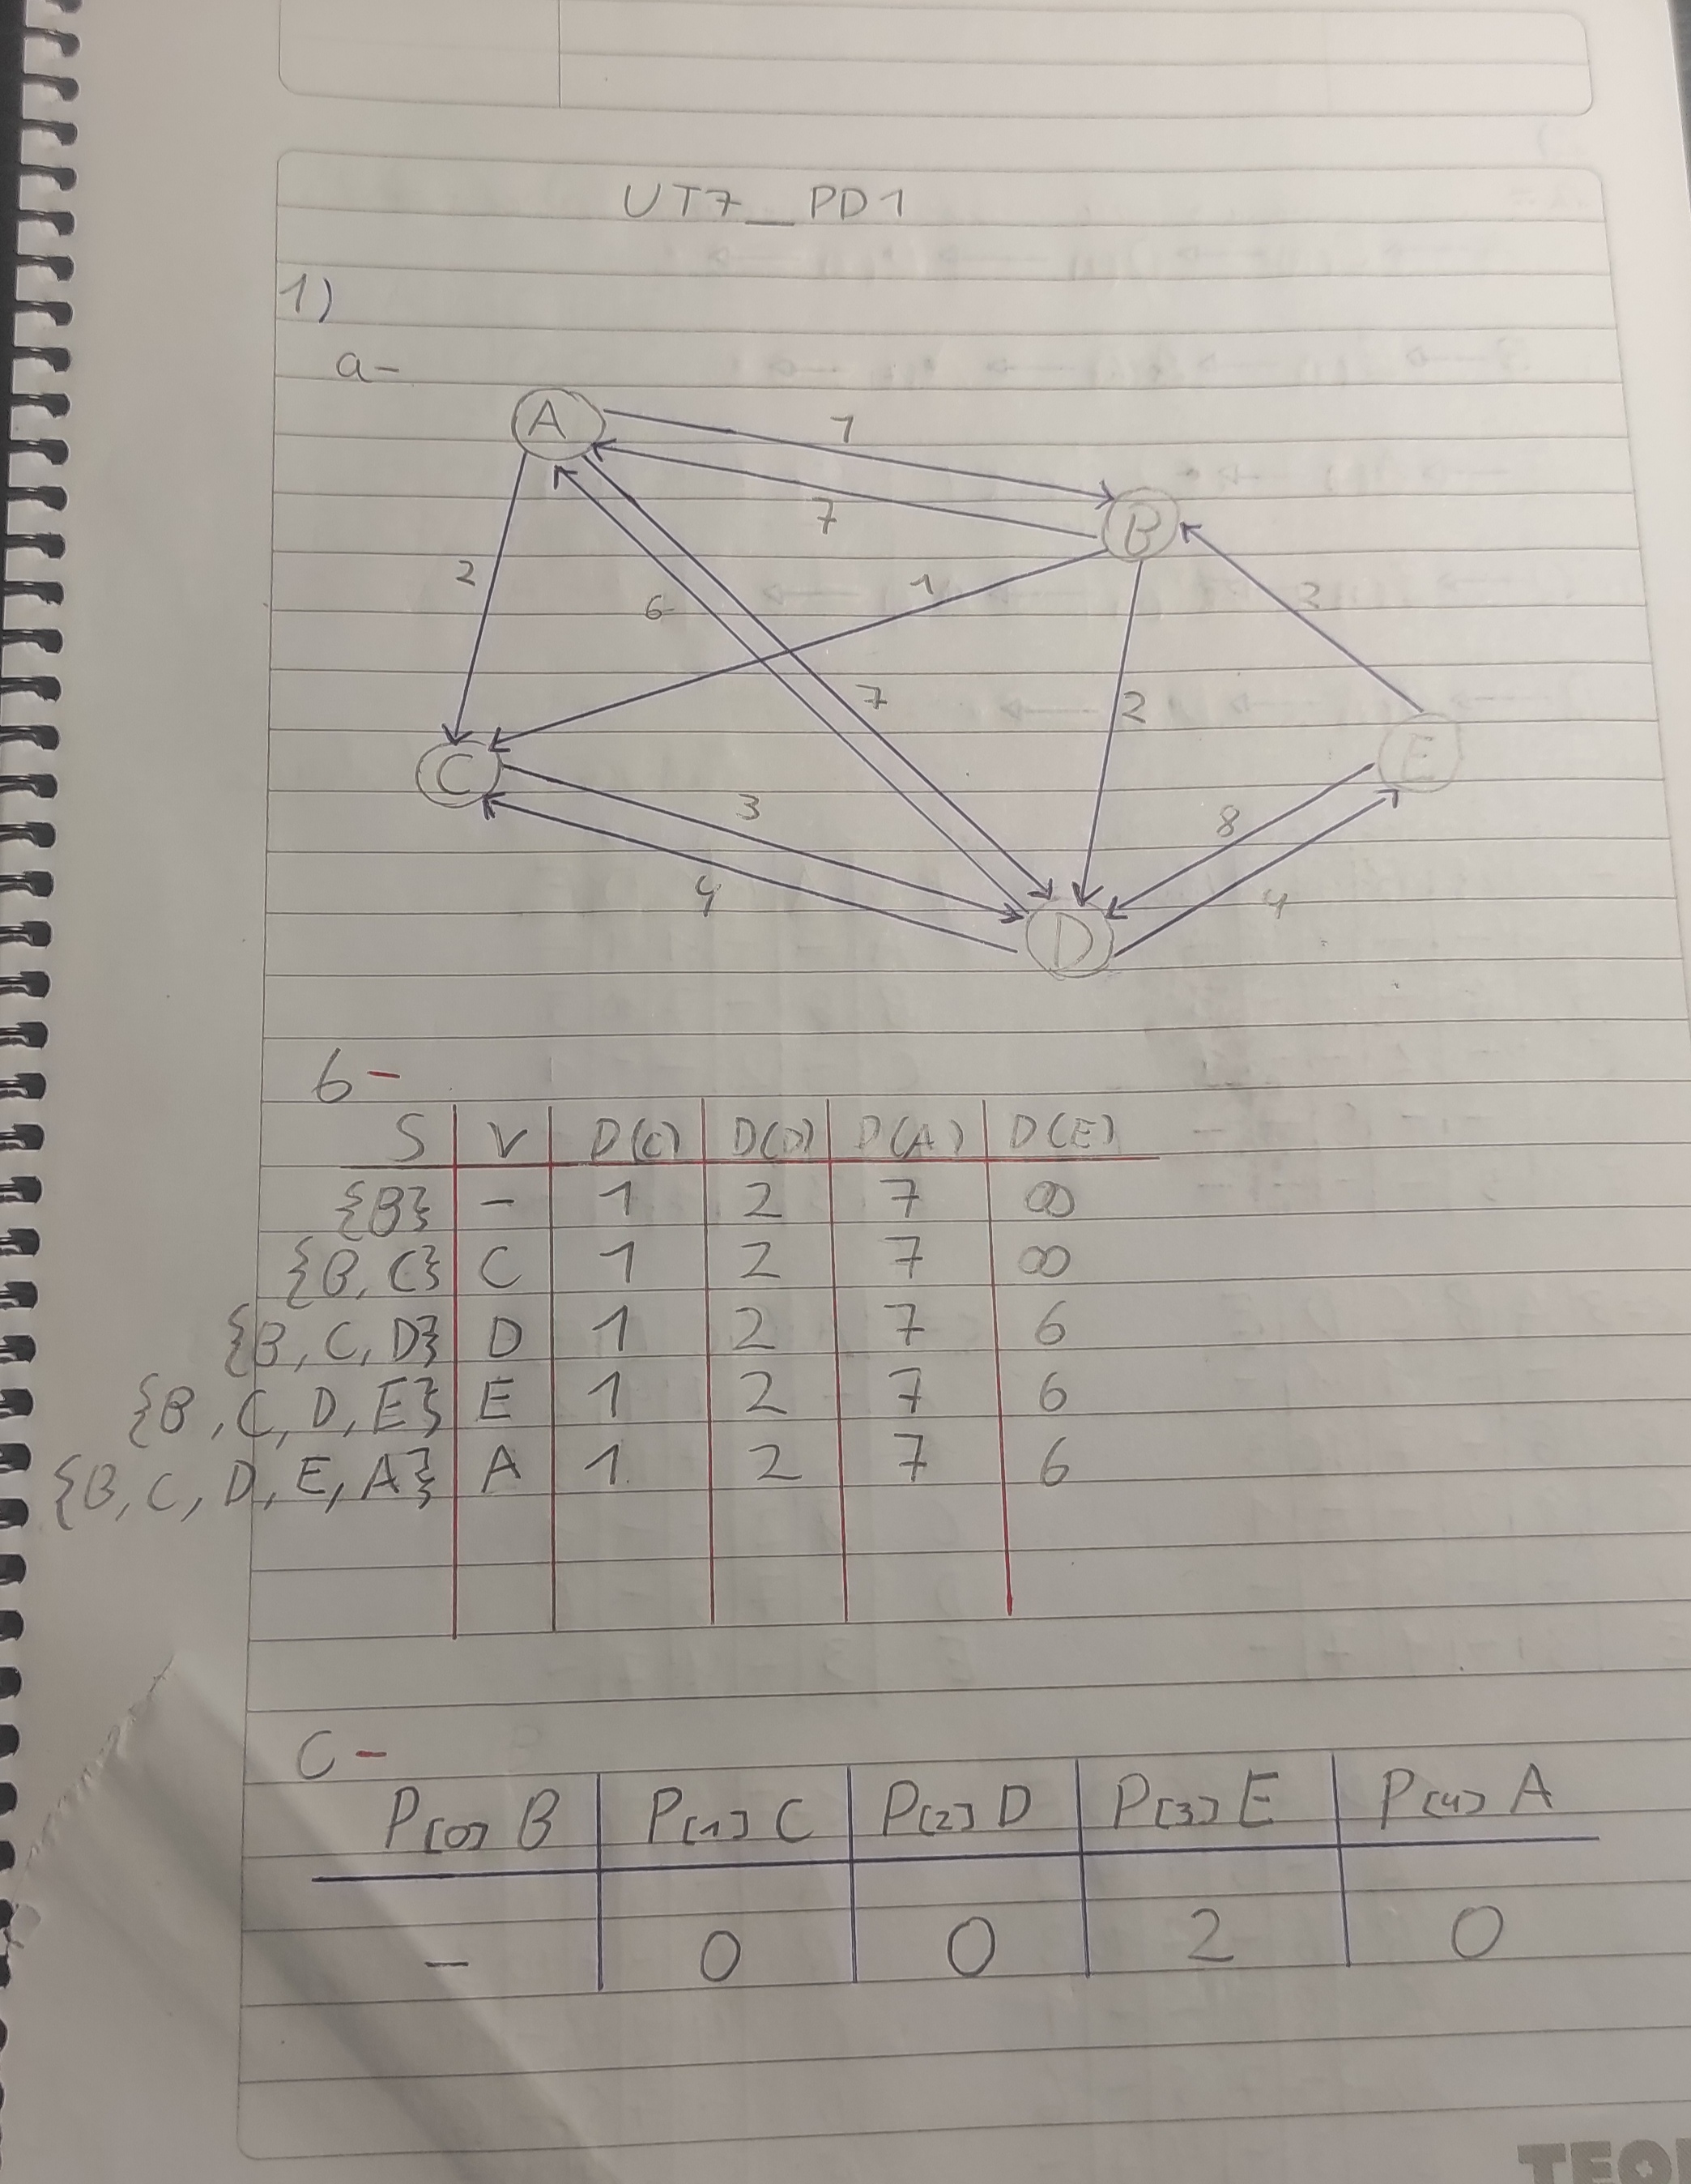 UT7_PD1
1)
a-
A
1
7
B
2
6
1
7
2
C
E
3
8
4
4
D
b-
S V D(C) D(D) D(A) D(E)
{B} - 1 2 7 ∞
{B, C} C 1 2 7 ∞
{B, C, D} D 1 2 7 6
{B, C, D, E} E 1 2 7 6
{B, C, D, E, A} A 1 2 7 6
C-
P[0] B P[1] C P[2] D P[3] E P[4] A
- 0 0 2 0